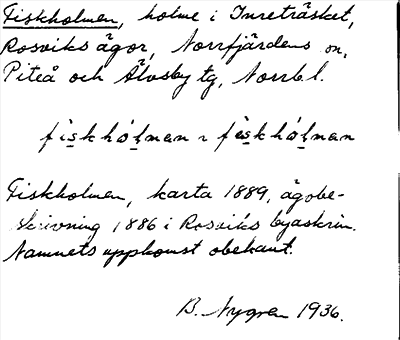 Fiskholmen, holme i Inreträsket,
Rosviks ägor, Norrfjärdens sn,
Piteå och Älvsby tg, Norrb. l.
fiskhólmen ~ feskhólmen
Fiskholmen, karta 1889, ägobe-
skrivning 1886 i Rosviks byaskrin.
Namnets uppkomst obekant.
B. Nygren 1936.